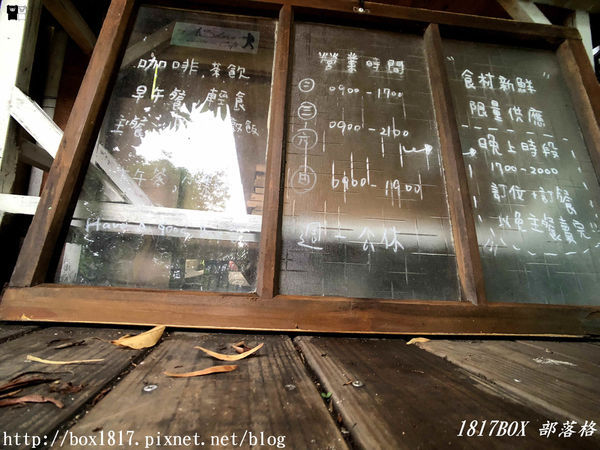 咖啡.茶飲
早午餐.輕食
主餐
Have a good
營業時間
0900-1700
0900-2100
0900-1900
週一公休
"食材新鮮"
限量供應
晚上時段
1700-2000
訂位.訂餐
以免主餐賣完
http://box1817.pixnet.net/blog
1817BOX 部落格